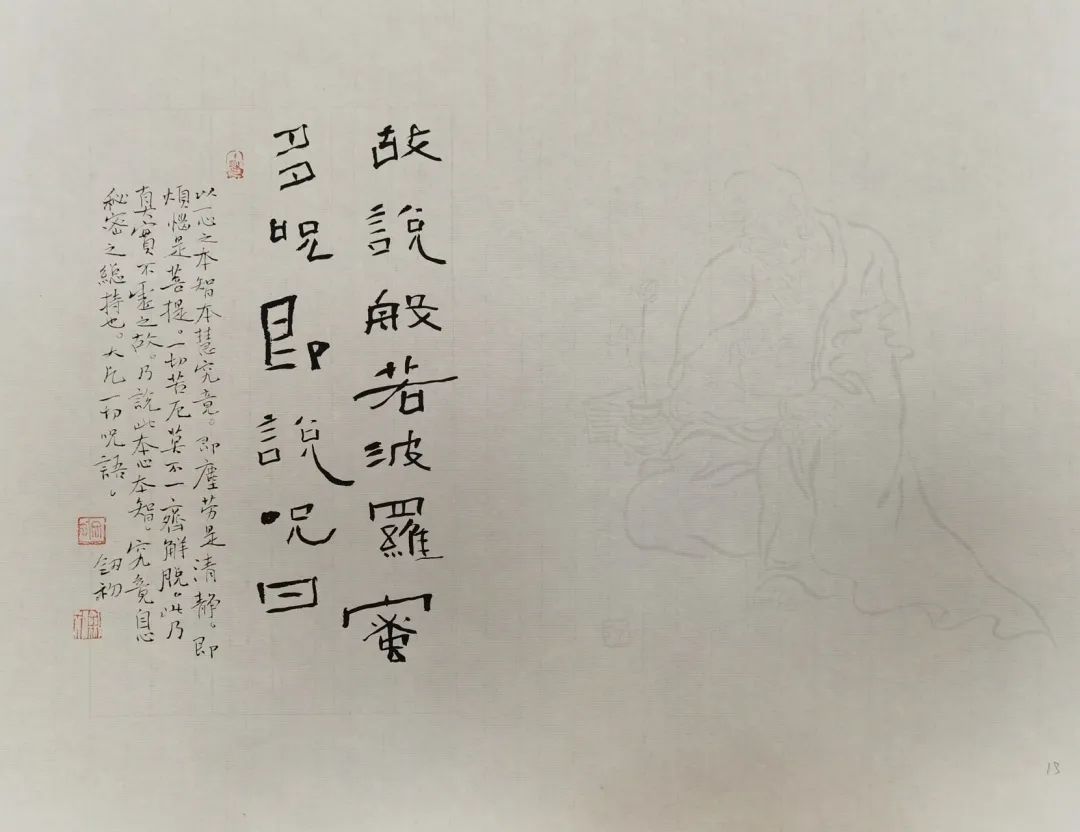 故說般若波羅蜜
多呪即說呪曰
以一心之本智本慧究竟。即塵勞是清靜。即
煩惱是菩提。一切苦厄莫不一齊解脫。此乃
真實不虛之故。乃說此本心本智。究竟自心
秘密之總持也。大凡一切呪語。
初
13